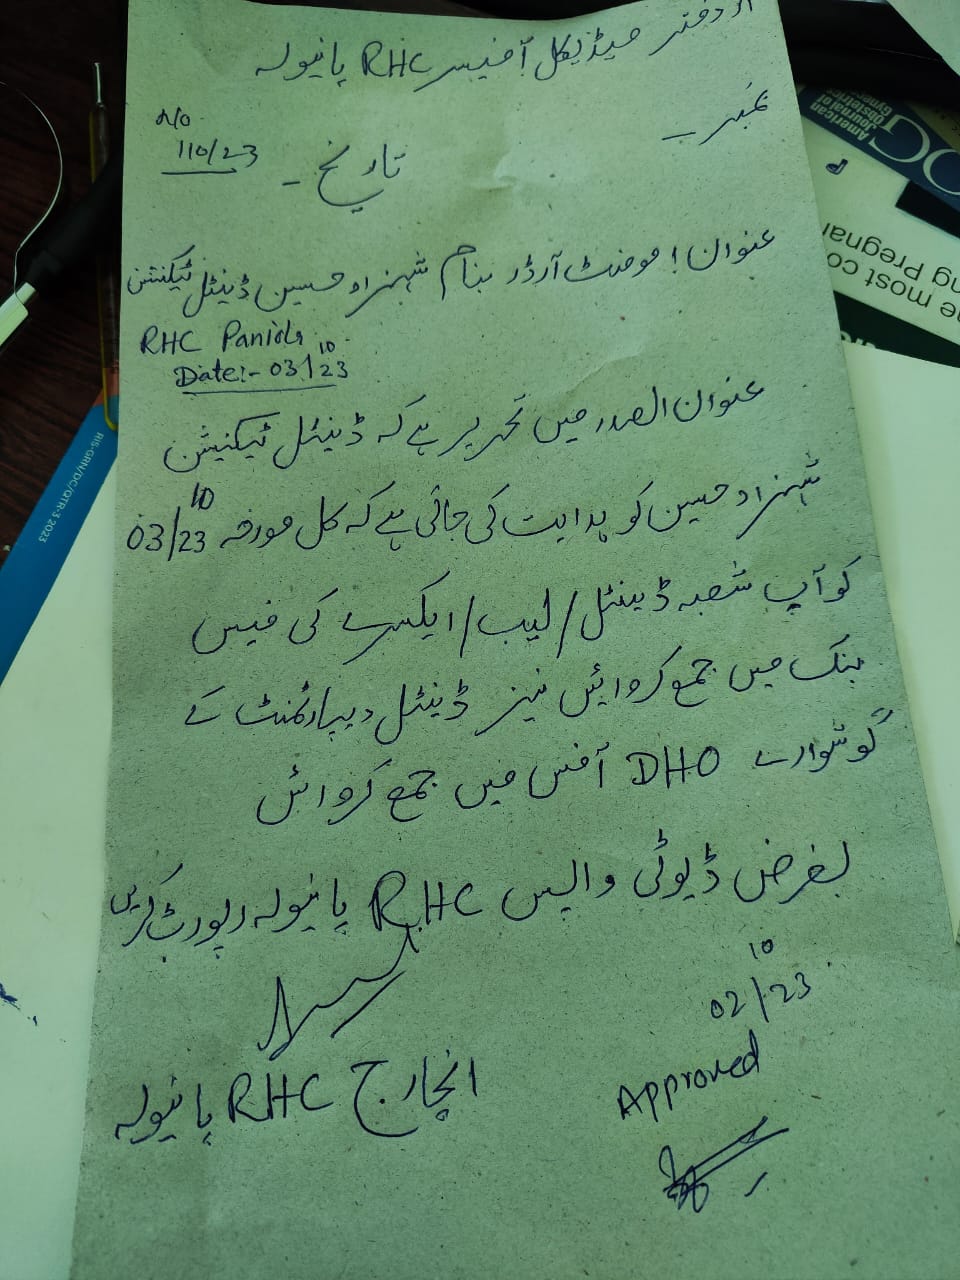 از دفتر میڈیکل آفیسر RHC پانیولہ
نمبر۔
No.
110/23
تاریخ ۔
عنوان ! موومنٹ آرڈر بنام شہزاد حسین ڈینٹل ٹیکنیشن
RHC Paniola
Date:- 03/10/23
عنوان الصدر میں تحریر ہے کہ ڈینٹل ٹیکنیشن
شہزاد حسین کو ہدایت کی جاتی ہے کہ کل مورخہ 03/10/23
کو آپ شعبہ ڈینٹل/لیب/ایکسرے کی فیس
بنک میں جمع کروائیں نیز ڈینٹل دیپارٹمنٹ کے
گوشوارے DHO آفس میں جمع کروائیں
بغرض ڈیوٹی واپس RHC پانیولہ رپورٹ کریں
02/10/23
Approved
انچارج RHC پانیولہ
American
Journal of
Obstetrics
Gyne
OG
e most co
ng Pregnan
RIS-GRN/DC/QTR-3 2023